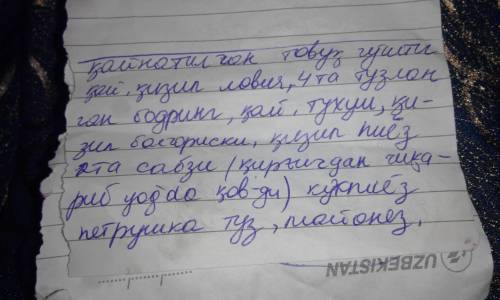 қайнатилган товуқ гушти
қай. қизил ловия, 4 та тузлан
ган бодринг, қай. тухум, қи-
зил болгориски, қизил пиёз
та сабзи (қирғичдан чиқа-
риб yoğda қов-ди) кўкпиёз
петрушка туз, майонез,
UZBEKISTAN